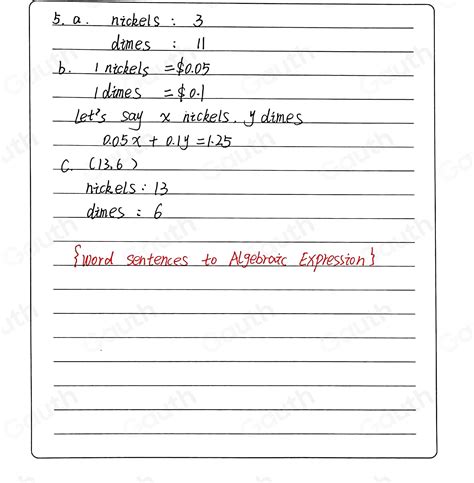 5. a. nickels : 3
dimes : 11
b. 1 nickels = $0.05
1 dimes = $0.1
Let's say x nickels. y dimes
0.05x + 0.1y = 1.25
C. (13,6)
nickels : 13
dimes : 6
{word sentences to Algebraic Expression}
Gauth